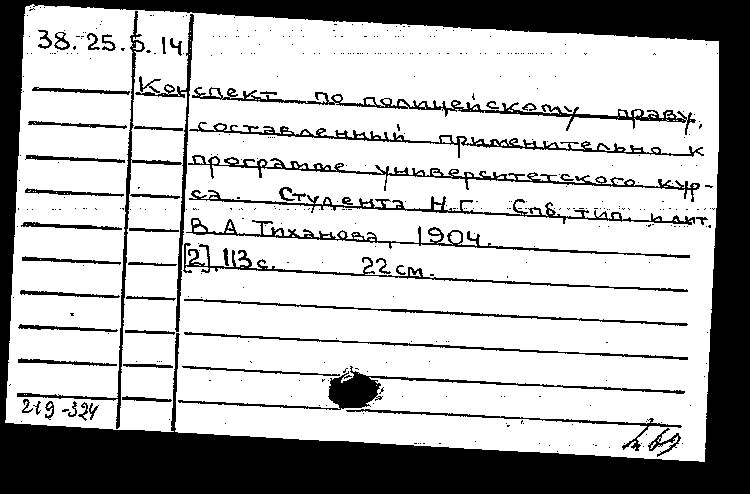 38.25.5.14.
Конспект по полицейскому праву,
составленный применительно к
программе университетского кур-
са. Студента Н.Г. Спб, тип. и лит.
В.А Тиханова, 1904.
[2], 113 с. 22 см.
219-324